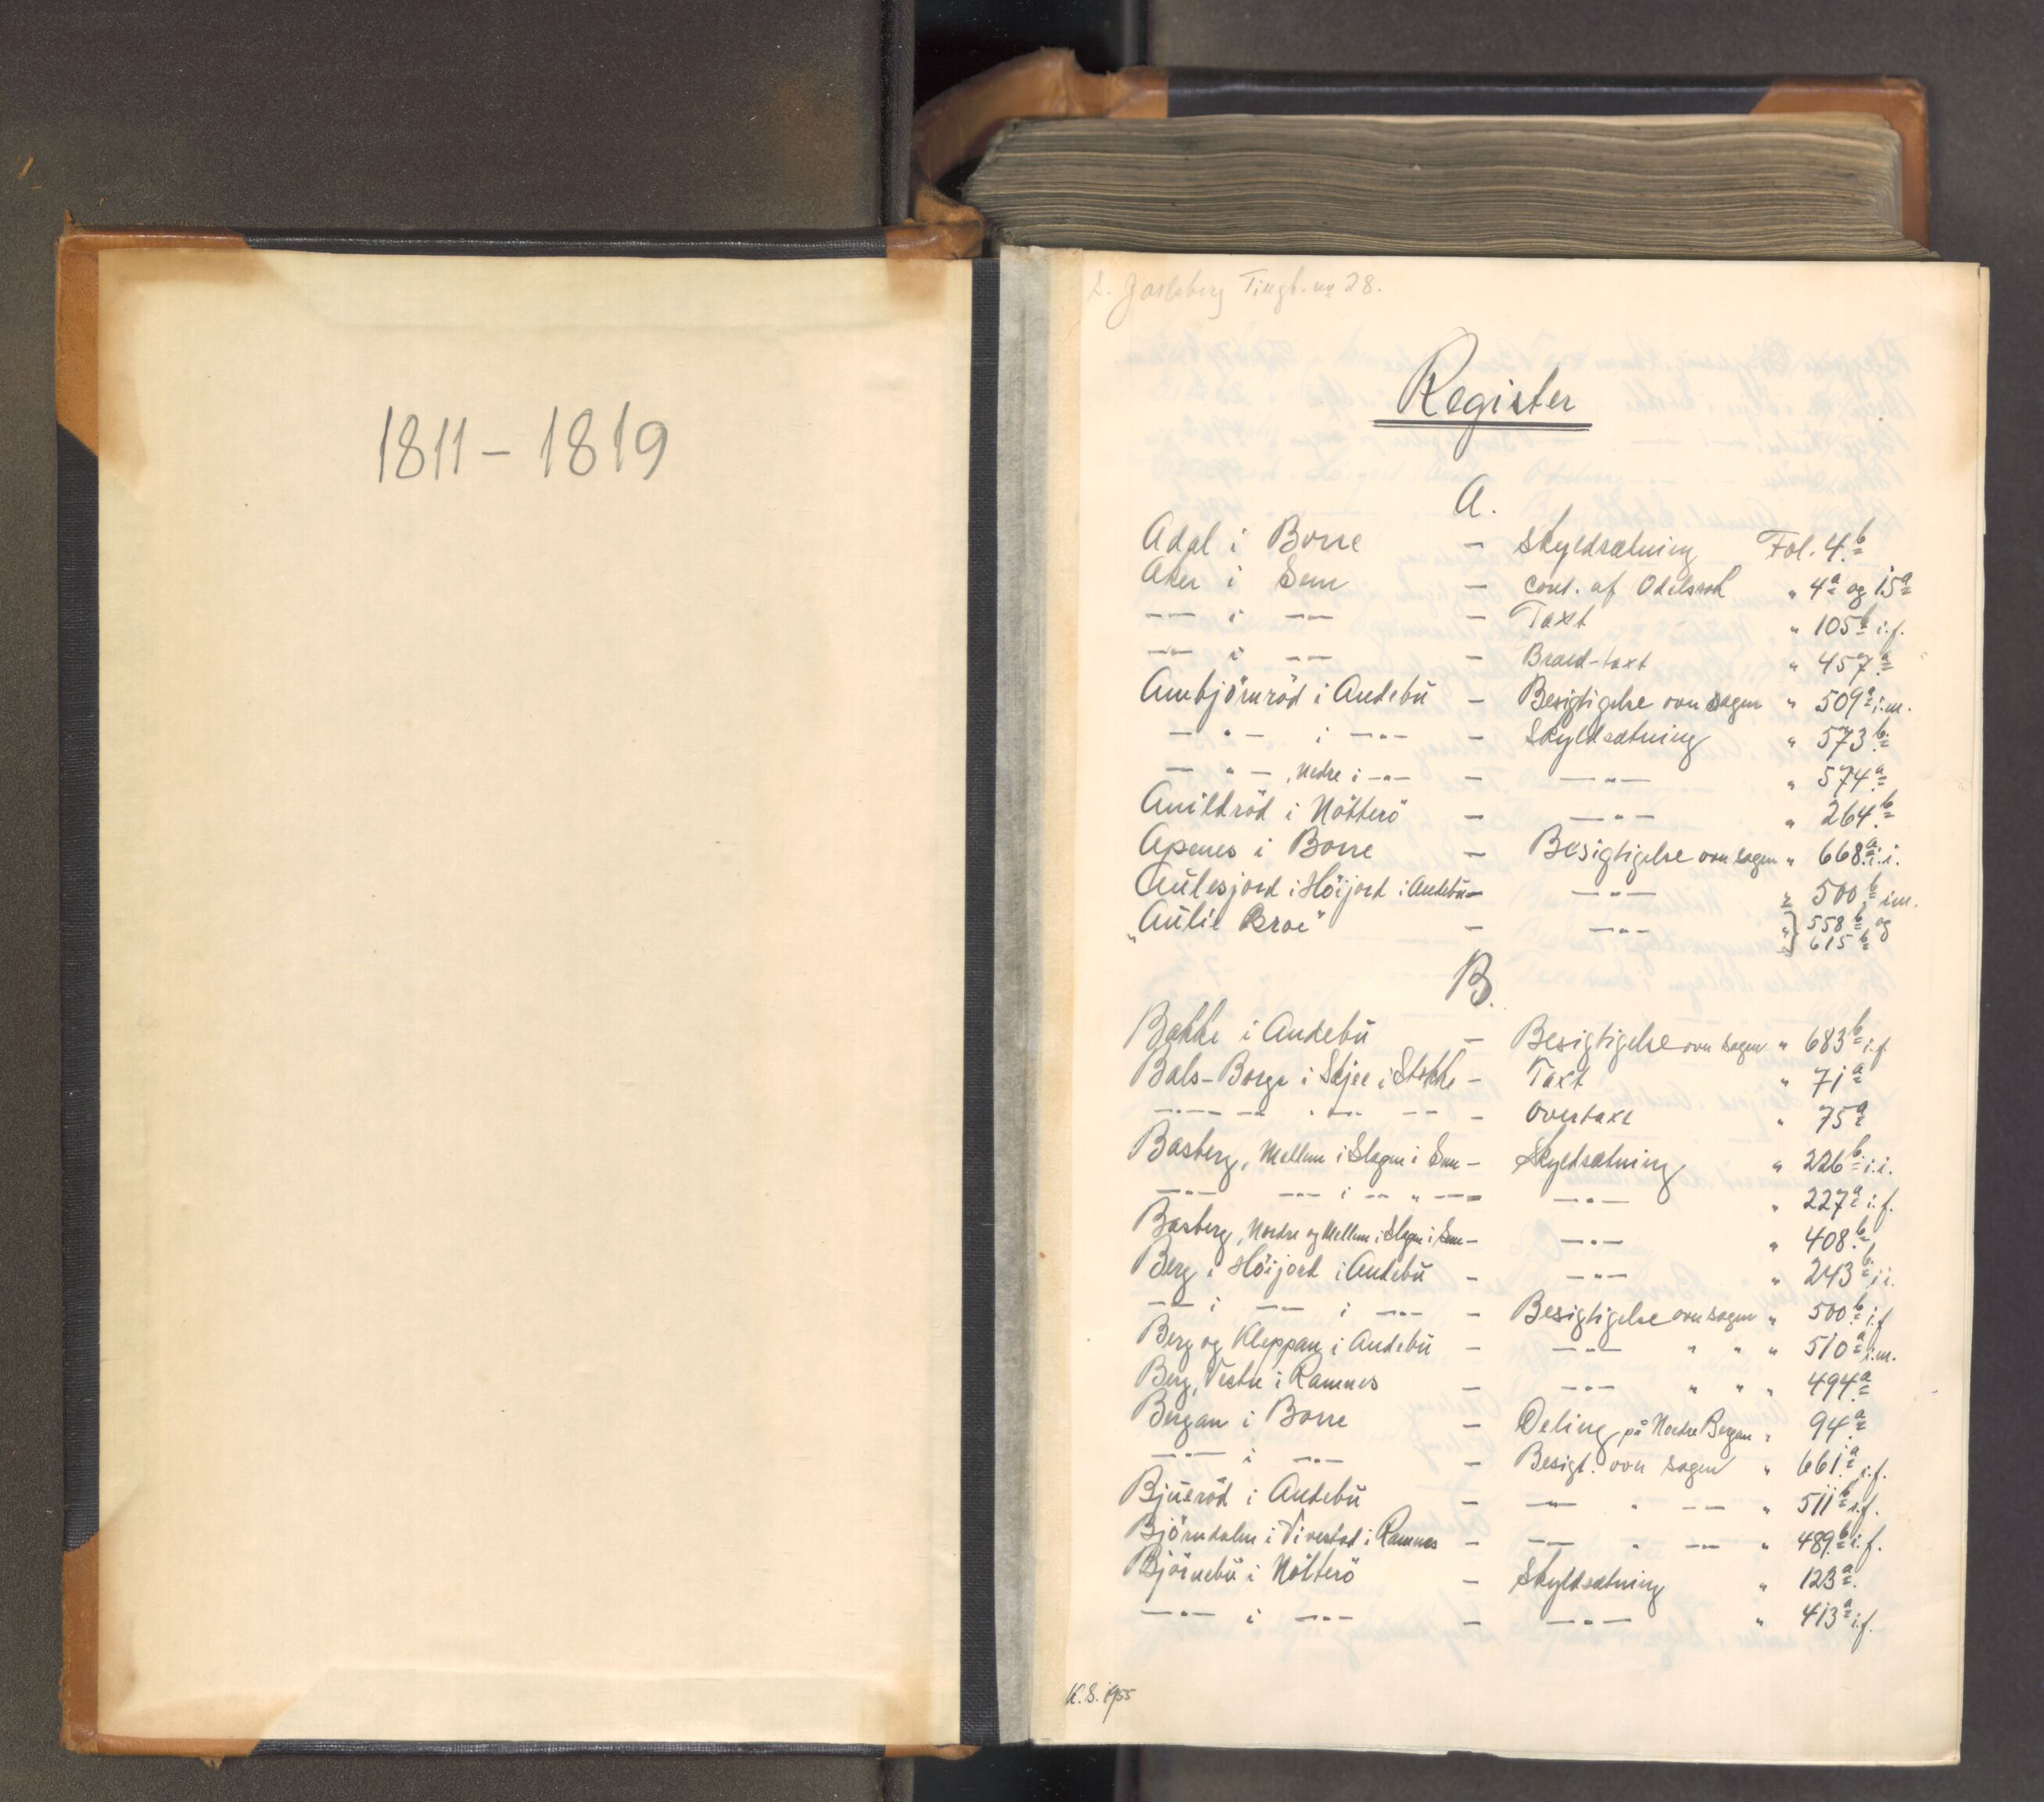 1811 - 1819
Jarlsberg Tingb. no 28.
Register
A.
Adal i Borre - Skyldsætning Fol. 4.b
Aker i Sem - cont. af Odelsret " 4a og 15a
-"- i -"- - Taxt " 105b i.f.
-"- i -"- - Brand-taxt " 457.a
Ambjörnröd i Andebu - Besigtigelse over sagen " 509a i.m.
-"- i -"- - Skyldsætning " 573.b
-"-, Nedre i -"- - -"- " 574.a
Amildröd i Nötterö - -"- " 264.b
Apenes i Borre - Besigtigelse over sagen " 668.a i.i.
Aulesjord i Höijord i Andebu - -"- " 500.b i.m.
"Aulie Broe" - -"- " } 558b og
615b
B.
Bakke i Andebu - Besigtigelse over sagen " 683b i.f.
Bals-Borge i Skjee i Stokke - Taxt " 71a
-"- -"- -"- -"- - Overtaxt " 75a
Basberg, Mellem i Slagen i Sem - Skyldsætning " 226b i.i.
-"- -"- i -"- " -"- -"- " 227a i.f.
Basberg, Nordre og Mellem i Slagen i Sem - -"- " 408.b
Berg i Höijord i Andebu - -"- " 243b i.i.
-"- i -"- i -"- - Besigtigelse over sagen " 500.b i.f.
Berg og Kleppan i Andebu - -"- " " " 510a i.m.
Berg, Vestre i Ramnes - -"- " " " 494.a
Bergan i Borre - Deling på Nordre Bergan " 94a
-"- i -"- - Besigt. over sagen " 661.a i.f.
Bjueröd i Andebu - -"- " -"- " 511b i.f.
Björndalen i Vivestad i Ramnes - -"- " -"- " 489.b i.f.
Björnebu i Nötterö - Skyldsætning " 123a.
-"- i -"- - -"- " 413a i.f.
K.S. 1955